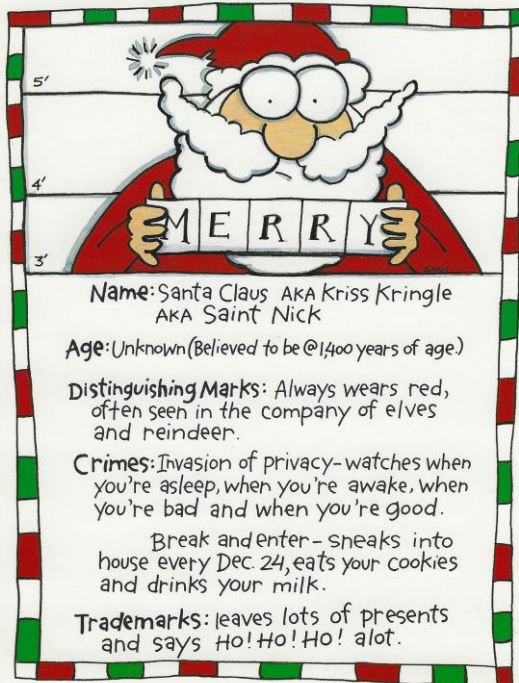 5'
4'
MERRY
3'
Name: Santa Claus AKA Kriss Kringle
AKA Saint Nick
Age: Unknown (Believed to be @1,400 years of age.)
Distinguishing Marks: Always wears red,
often seen in the company of elves
and reindeer.
Crimes: Invasion of privacy-watches when
you're asleep, when you're awake, when
you're bad and when you're good.
Break and enter- sneaks into
house every Dec. 24, eats your cookies
and drinks your milk.
Trademarks: leaves lots of presents
and says Ho! Ho! Ho! alot.